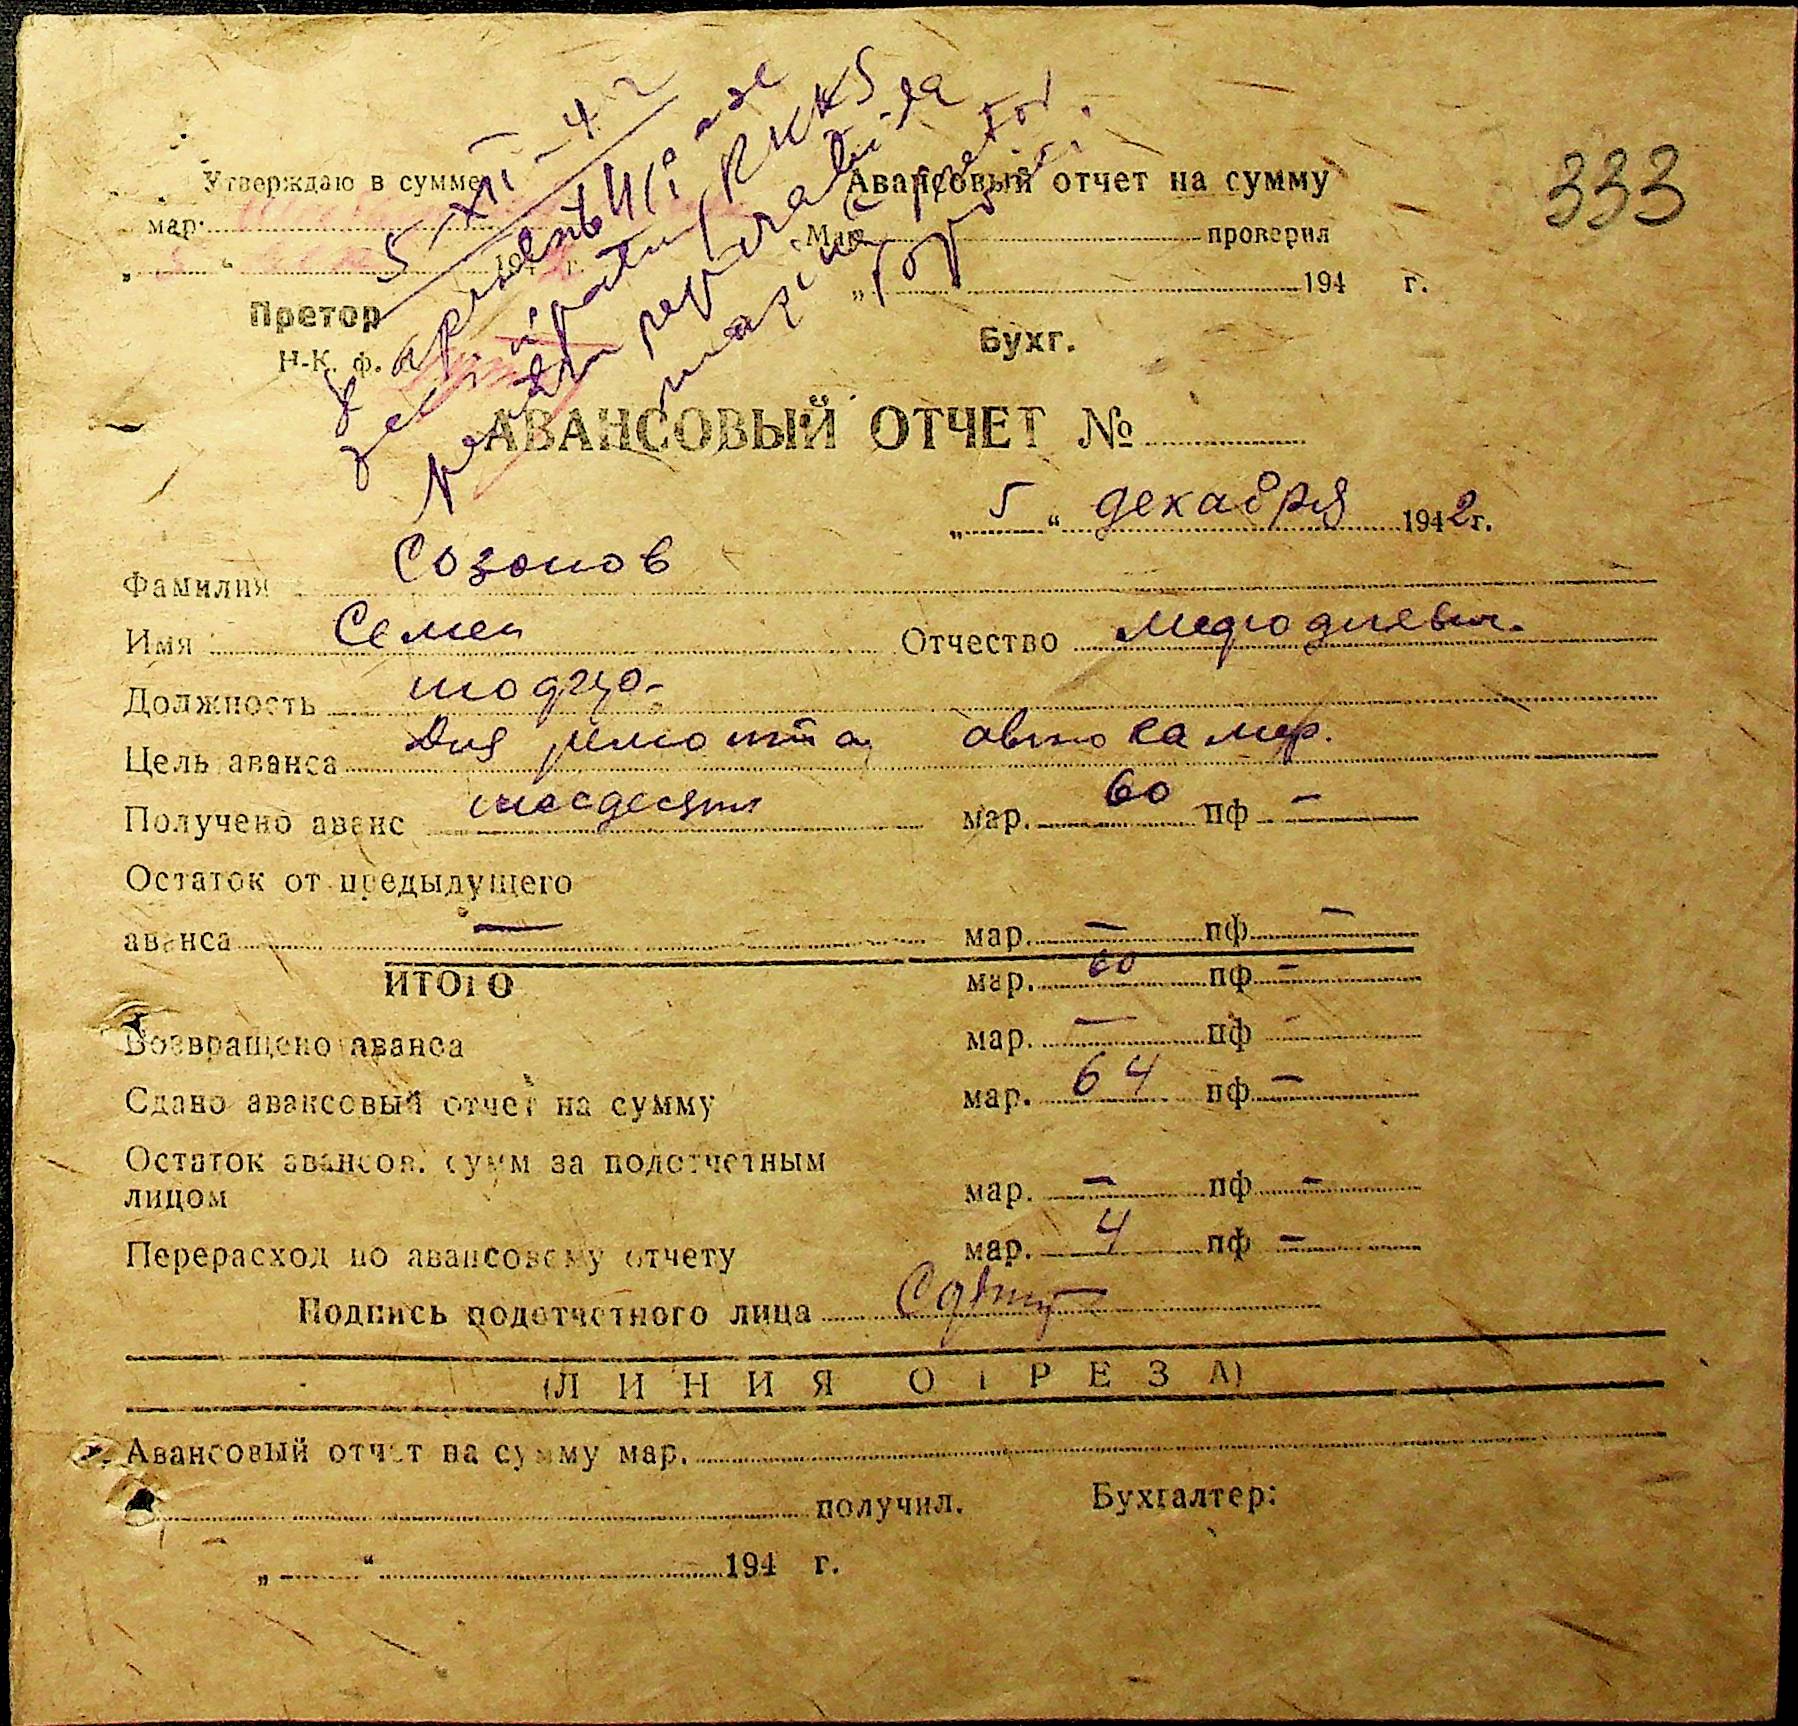 333
5-XII-42
Утверждаю в сумме
мар.
194 г.
Претор
Н-К. ф.
Авансовый отчет на сумму
Мар. проверил
„ 194 г.
Бухг.
RKKS
reparatul
АВАНСОВЫЙ ОТЧЕТ №
„5“ декабря 1942 г.
Фамилия Созонов
Имя Семен Отчество Мефодиевич.
Должность шофер
Цель аванса Для ремонта автокамер.
Получено аванс шесдесят мар. 60 пф —
Остаток от предыдущего
аванса — мар. — пф —
ИТОГО мар. 60 пф —
Возвращено аванса мар. — пф —
Сдано авансовый отчет на сумму мар. 64 пф —
Остаток авансов. сумм за подотчетным
лицом мар. — пф —
Перерасход по авансовому отчету мар. 4 пф —
Подпись подотчетного лица
(ЛИНИЯ ОТРЕЗА)
Авансовый отчет на сумму мар.
получил. Бухгалтер:
„ “ 194 г.